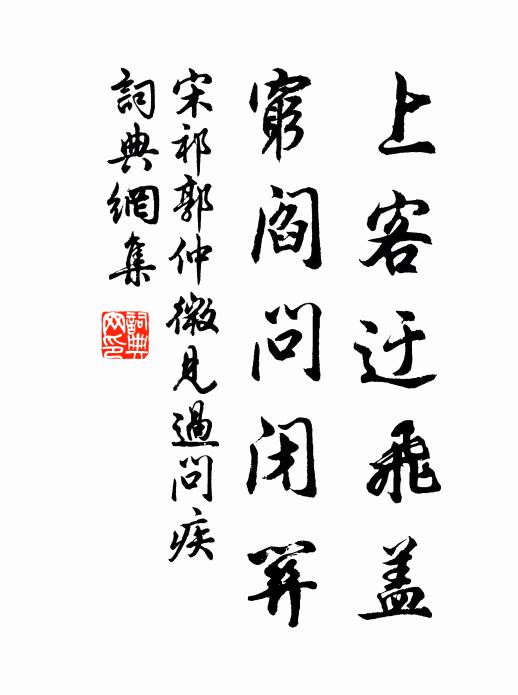 上客迂飛盖
窮閻問閉關
宋祁郭仲微見過問疾
詞典網集
詞典
网印